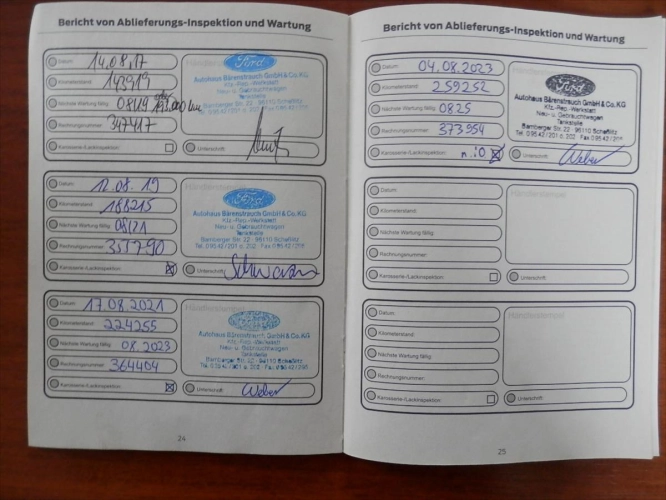 Bericht von Ablieferungs-Inspektion und Wartung
Datum: 14.08.17
Kilometerstand: 143919
Nächste Wartung fällig: 08/19
Rechnungsnummer: 347417
Karosserie-/Lackinspektion:
Unterschrift:
Ford
Autohaus Bärenstrauch GmbH & Co. KG
Kfz.-Rep.-Werkstatt
Neu- u. Gebrauchtwagen
Tankstelle
Datum: 12.08.19
Kilometerstand: 186215
Nächste Wartung fällig: 08/21
Rechnungsnummer: 355790
Karosserie-/Lackinspektion:
Händlerstempel
Ford
Autohaus Bärenstrauch GmbH & Co. KG
Kfz.-Rep.-Werkstatt
Neu- u. Gebrauchtwagen
Tankstelle
Bamberger Str. 22 - 96110 Scheßlitz
Unterschrift:
Datum: 17.08.2021
Kilometerstand: 224255
Nächste Wartung fällig: 08.2023
Rechnungsnummer: 364404
Karosserie-/Lackinspektion:
Händlerstempel
Autohaus Bärenstrauch GmbH & Co. KG
Kfz.-Rep.-Werkstatt
Neu- u. Gebrauchtwagen
Tankstelle
Unterschrift: Weber
24
Bericht von Ablieferungs-Inspektion und Wartung
Datum: 04.08.2023
Kilometerstand: 259252
Nächste Wartung fällig: 0825
Rechnungsnummer: 373954
Karosserie-/Lackinspektion: n.iO
Ford
Autohaus Bärenstrauch GmbH & Co. KG
Kfz.-Rep.-Werkstatt
Neu- u. Gebrauchtwagen
Tankstelle
Bamberger Str. 22 - 96110 Scheßlitz
Unterschrift: Weber
Datum:
Kilometerstand:
Nächste Wartung fällig:
Rechnungsnummer:
Karosserie-/Lackinspektion:
Händlerstempel
Unterschrift:
Datum:
Kilometerstand:
Nächste Wartung fällig:
Rechnungsnummer:
Karosserie-/Lackinspektion:
Händlerstempel
Unterschrift:
25